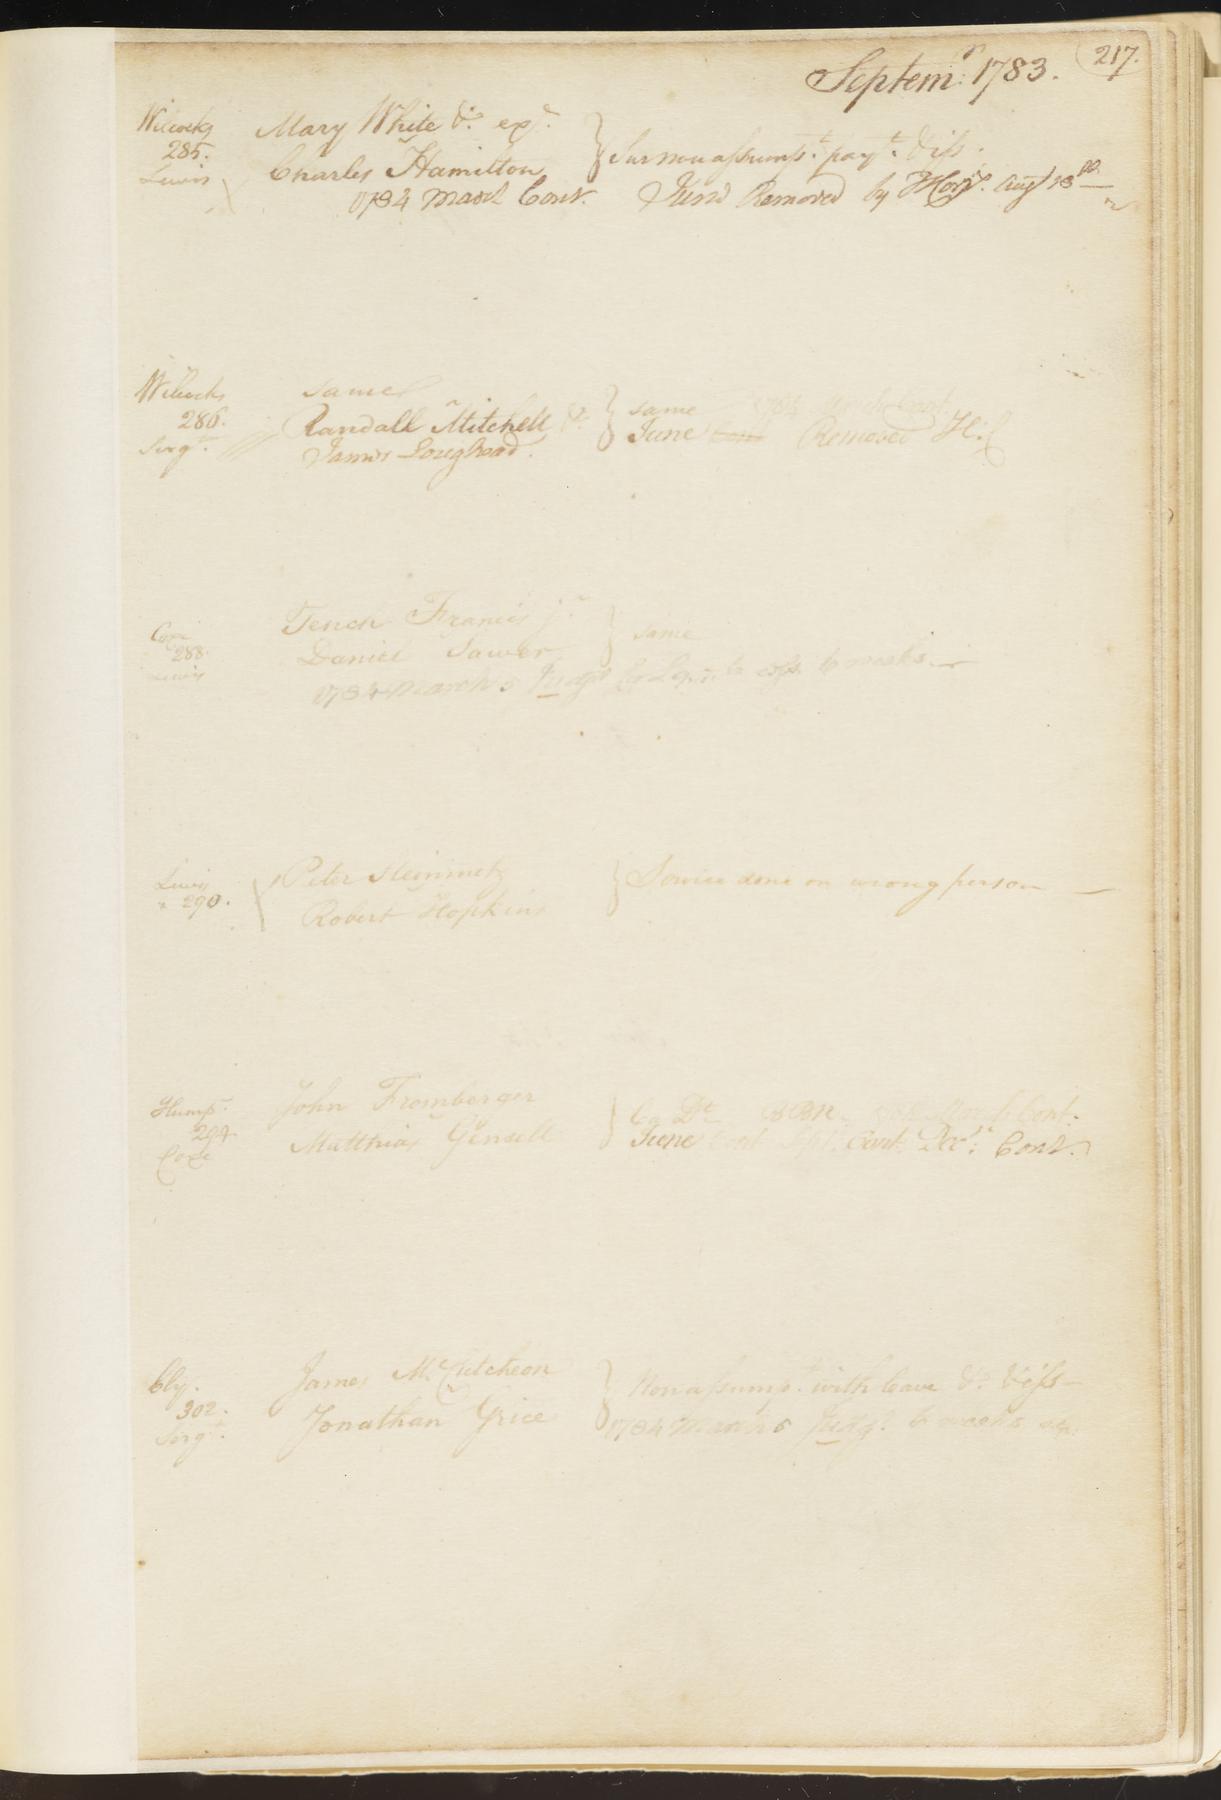 217.
Septemr. 1783.
Wilcocks
285.
Lewis
Mary White &c. exr.
Charles Hamilton
Sur non assumpt. paymt. &
1784 March Cont. June Removed by Aug
Wilcocks
286.
Sergt.
same
Randall Mitchell &
James Loughead.
same 1784 March Cont
June Cont Removed H.C
Coxe
288.
Lewis
Tench Francis jr.
Daniel Sawer
same
1784 March 5 Judgt 6 weeks
Lewis
290.
Peter Steinmetz
Robert Hopkins
Service done on wrong person
Hump.
294
Coxe
John Fromberger
Matthias Gensell
Ca Dt BBM. March Cont.
June Cont Sept. Cont. Decr. Cont.
Cly.
302.
Sergt.
James McCutcheon
Jonathan Grice
Non assumpt. with leave &c
1784 March 5 Judgt. 6 weeks